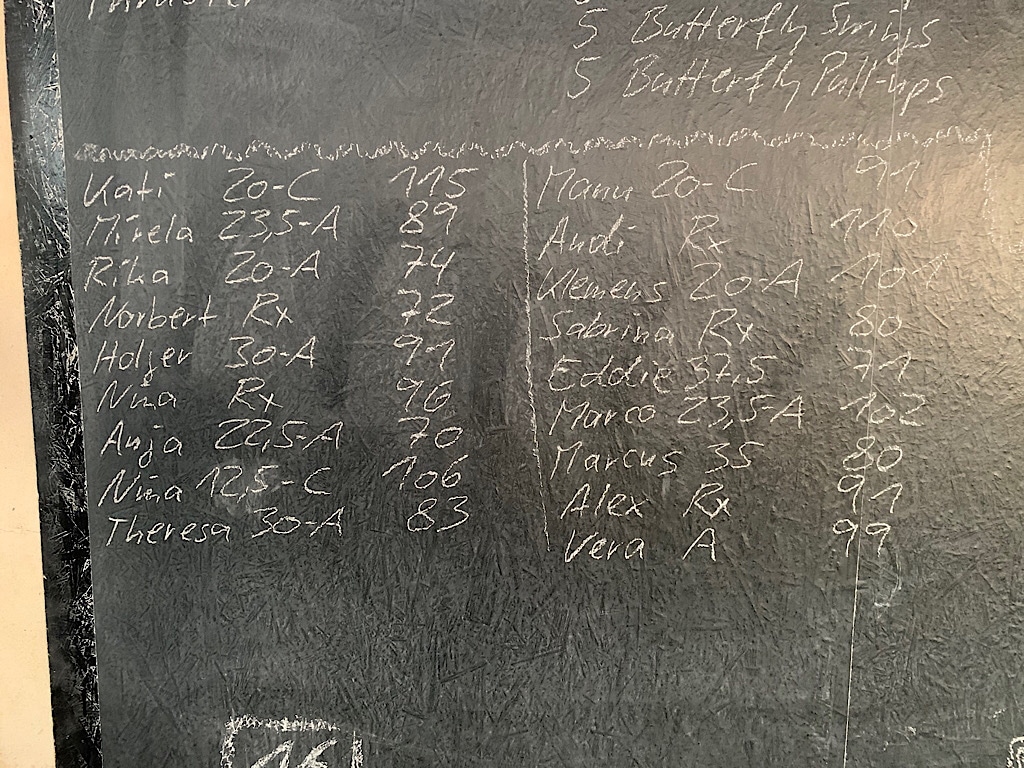 Thruster
5 Butterfly Swings
5 Butterfly Pull-ups
Kati 20-C 115
Mirela 23,5-A 89
Rika 20-A 74
Norbert Rx 72
Holger 30-A 91
Nina Rx 96
Anja 22,5-A 70
Nina 12,5-C 106
Theresa 30-A 83
Manu 20-C 91
Andi Rx 110
Klemens 20-A 101
Sabrina Rx 80
Eddie 37,5 71
Marco 23,5-A 102
Marcus 35 80
Alex Rx 91
Vera A 99